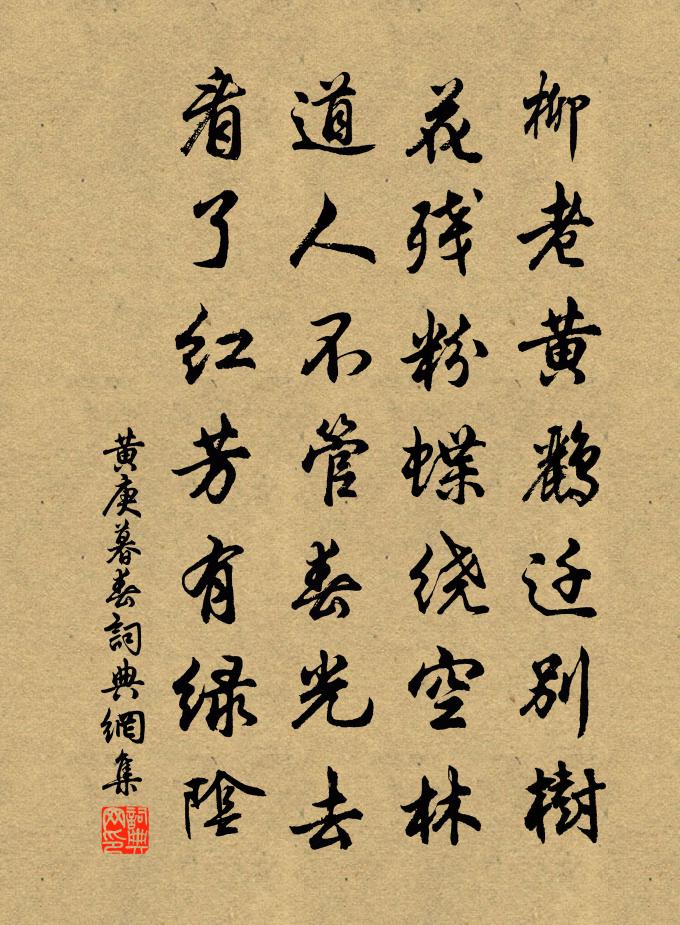 柳老黄鹂迁别樹
花残粉蝶绕空林
道人不管春光去
看了红芳有绿陰
黄庚暮春詞典網集
詞典网印